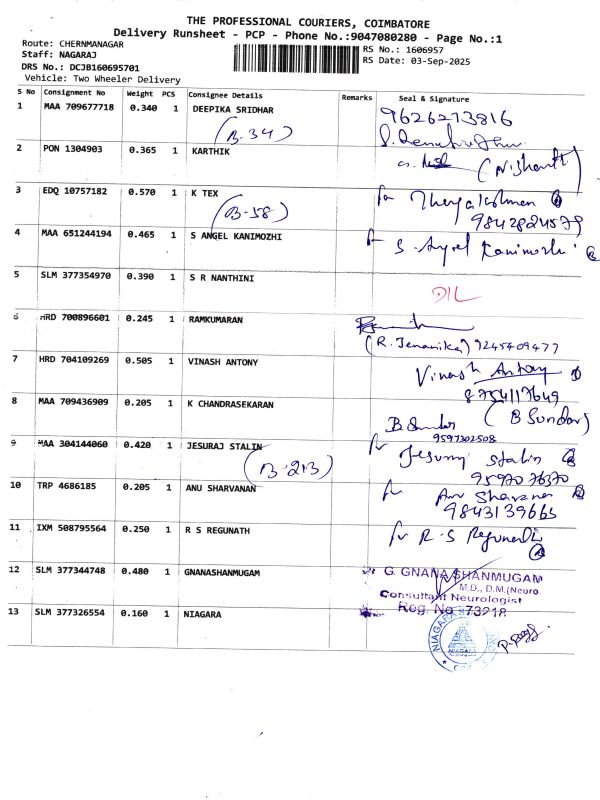 THE PROFESSIONAL COURIERS, COIMBATORE
Delivery Runsheet - PCP - Phone No.:9047080280 - Page No.:1
Route: CHERNMANAGAR
RS No.: 1606957
Staff: NAGARAJ
RS Date: 03-Sep-2025
DRS No.: DCJB160695701
Vehicle: Two Wheeler Delivery
S No Consignment No Weight PCS Consignee Details Remarks Seal & Signature
1 MAA 709677718 0.340 1 DEEPIKA SRIDHAR 9626273816
(B-34)
2 PON 1304903 0.365 1 KARTHIK (Nishanth)
3 EDQ 10757182 0.570 1 K TEX for
(B-58) 9842824579
4 MAA 651244194 0.465 1 S ANGEL KANIMOZHI for S. Angel Kanimozhi
5 SLM 377354970 0.390 1 S R NANTHINI
D/L
6 HRD 700896601 0.245 1 RAMKUMARAN
(R. Jenanika) 9245409477
7 HRD 704109269 0.505 1 VINASH ANTONY Vinash Antony
8754117649
8 MAA 709436909 0.205 1 K CHANDRASEKARAN (B Sundar)
9597302508
9 MAA 304144060 0.420 1 JESURAJ STALIN for Jesuraj Stalin
(B-213) 9597076370
10 TRP 4686185 0.205 1 ANU SHARVANAN for Anu Sharvanan
9843139665
11 IXM 508795564 0.250 1 R S REGUNATH for R.S Regunath
12 SLM 377344748 0.480 1 GNANASHANMUGAM G. GNANA SHANMUGAM
M.D., D.M.(Neuro
Consultant Neurologist
Reg. No. 73218
13 SLM 377326554 0.160 1 NIAGARA
NIAGARA